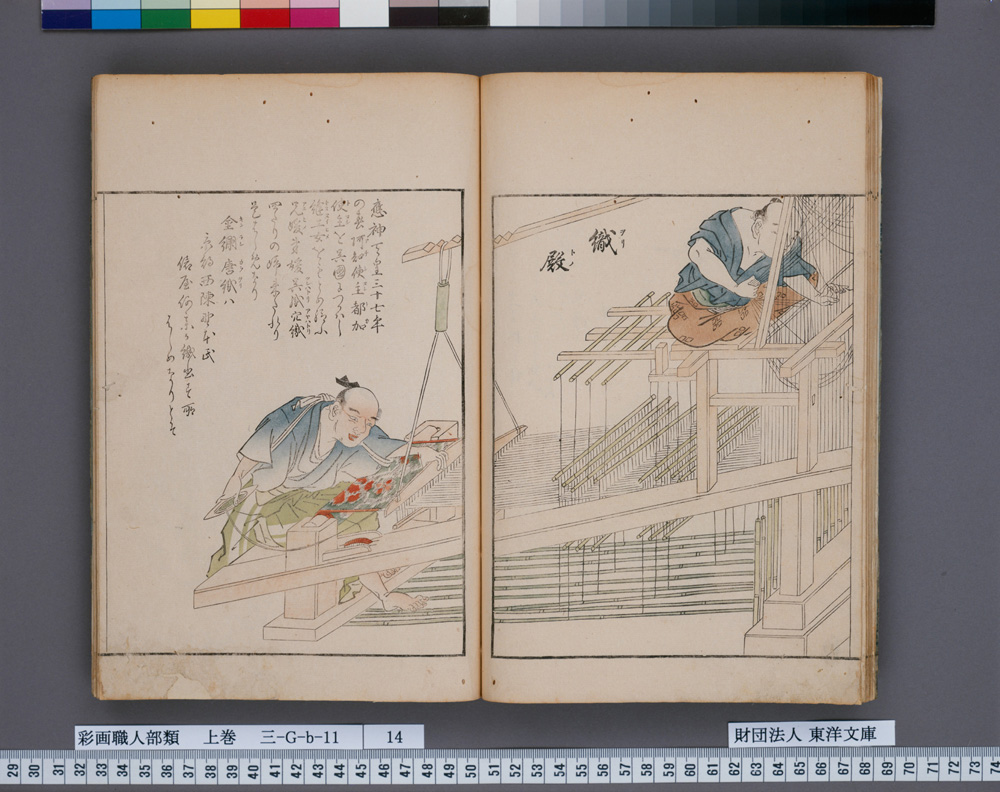 織
ヲリ
殿
トノ
應神天皇三十七年
の春阿知使主都加
使主を呉國につかハし
縫工女をもとめ給ふ
兄媛弟媛呉織穴織
四人の婦
金襴唐織ハ
京都西陳
俵屋何某が織出す所
はじめなりとぞ
彩画職人部類 上巻 三-G-b-11 14
財団法人 東洋文庫
29 30 31 32 33 34 35 36 37 38 39 40 41 42 43 44 45 46 47 48 49 50 51 52 53 54 55 56 57 58 59 60 61 62 63 64 65 66 67 68 69 70 71 72 73 74